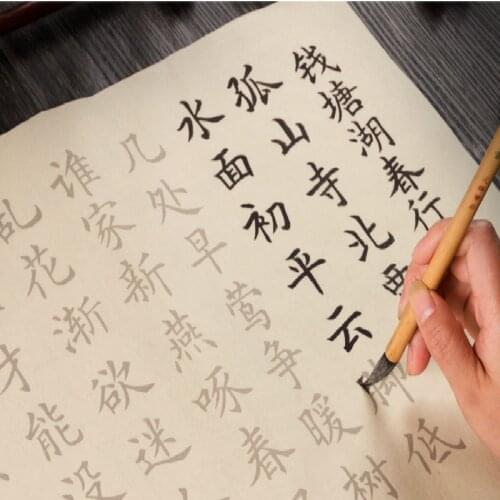 钱塘湖春行
孤山寺北
水面初平云脚低
几处早莺争暖树
谁家新燕啄春
乱花渐欲迷
才能没